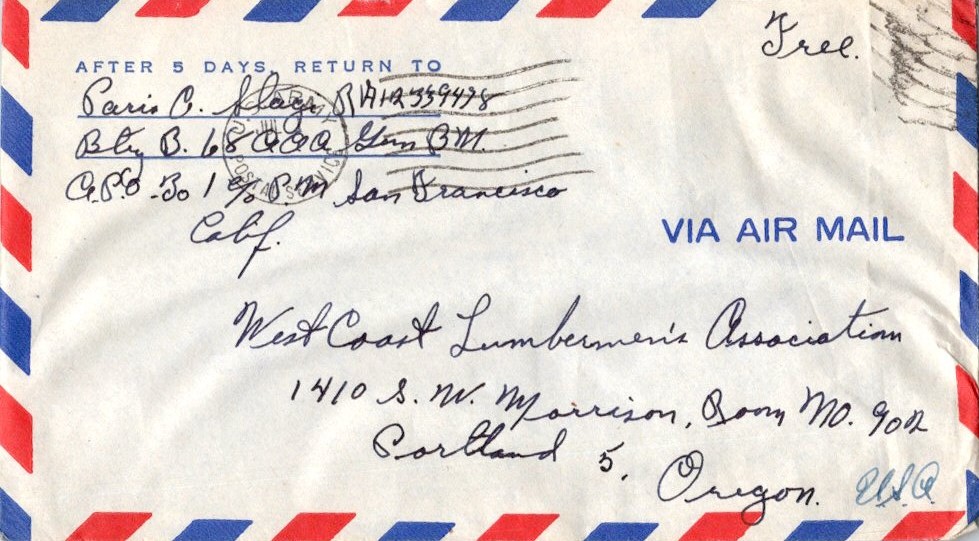 Free.
AFTER 5 DAYS, RETURN TO
Paris C. RA12339498
Btry B. 68 AAA Gun BN.
A.P.O-301 c/o P.M San Francisco
Calif.
VIA AIR MAIL
West Coast Lumbermen's Association
1410 S. W. Morrison, Room NO. 902
Portland 5,
Oregon. U.S.A
ARMY POSTAL SERVICE